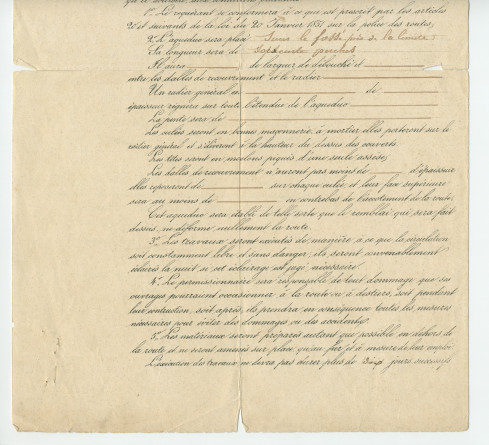 1º Le requérant se conformera à ce que est prescrit par les articles
20 et suivants de la loi du 20 Janvier 1851 sur la police des routes,
2º L'aqueduc sera placé dans le fossé près de la
Sa longueur sera de soixante
Il aura de largeur de débouché et
entre les dalles de recouvrement et le radier
Un radier général en de
épaisseur règnera sur toute l'étendue de l'aqueduc
La pente sera de
Les culées seront en bonne maçonnerie, à mortier elles porteront sur le
radier général et s'élèveront à la hauteur du dessous des couverts.
Les têtes seront en moëlons piqués d'une seule assise,
Les dalles de recouvrement n'auront pas moins de d'épaisseur
elles reposeront de sur chaque culée, et leur face supérieure
sera au moins de en contrebas de l'accotement de la route.
Cet aqueduc sera établi de telle sorte que le remblai qui sera fait
dessus, ne déforme nullement la route.
3º Les travaux seront exécutés de manière à ce que la circulation
soit constamment libre et sans danger, ils seront convenablement
éclairés la nuit si cet éclairage est jugé nécessaire.
4º Le permissionnaire sera responsable de tout dommage que ses
ouvrages pourraient occasionner à la route ou à des tiers, soit pendant
leur construction, soit après, ils prendra en conséquence toutes les mesures
nécessaires pour éviter des dommages ou des accidents.
5º Les matériaux seront préparés autant que possible en dehors de
la route et ne seront amenés sur place qu'au fur et à mesure de leur emploi
L'exécution des travaux ne devra pas durer plus de cinq jours successifs